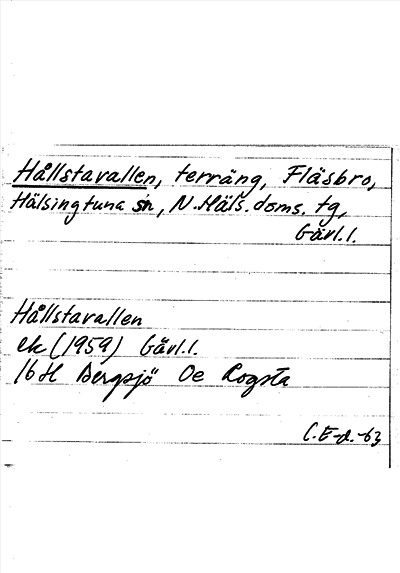 Hållstavallen, terräng, Fläsbro,
Hälsingtuna sn, N.Häls.doms.tg,
Gävl.l.
Hållstavallen
ek (1959) Gävl.l.
16H Bergsjö Oe Rogsta
C.E-d.-63